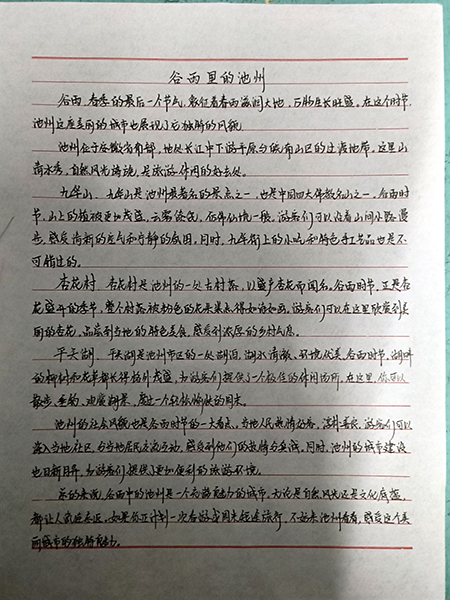 谷雨里的池州
谷雨,春季的最后一个节气,象征着春雨滋润大地,万物生长旺盛。在这个时节,
池州这座美丽的城市也展现了它独特的风貌。
池州位于安徽省南部,地处长江中下游平原与皖南山区的过渡地带。这里山
清水秀,自然风光旖旎,是旅游休闲的好去处。
九华山,九华山是池州最著名的景点之一,也是中国四大佛教名山之一。谷雨时
节,山上的植被更加茂盛,云雾缭绕,仿佛仙境一般。游客们可以沿着山间小路漫
步,感受清新的空气和宁静的氛围。同时,九华街上的小吃和特色手工艺品也是不
可错过的。
杏花村,杏花村是池州的一处古村落,以盛产杏花而闻名。谷雨时节,正是杏
花盛开的季节,整个村落被粉色的花朵装点得如诗如画。游客们可以在这里欣赏到美
丽的杏花,品尝到当地的特色美食,感受到浓厚的乡村气息。
平天湖,平天湖是池州市区的一处湖泊,湖水清澈,环境优美。谷雨时节,湖畔
的柳树和花草都长得格外茂盛,为游客们提供了一个极佳的休闲场所。在这里,你可以
散步、垂钓、观赏湖景,度过一个轻松愉快的周末。
池州的社会风貌也是谷雨时节的一大看点。当地人民热情好客,淳朴善良,游客们可以
深入当地社区,与当地居民交流互动,感受到他们的热情与真诚。同时,池州的城市建设
也日新月异,为游客们提供了更加便利的旅游环境。
总的来说,谷雨中的池州是一个充满魅力的城市。无论是自然风光还是文化底蕴,
都让人流连忘返。如果你正计划一次春游或周末短途旅行,不妨来池州看看,感受这个美
丽城市的独特魅力。